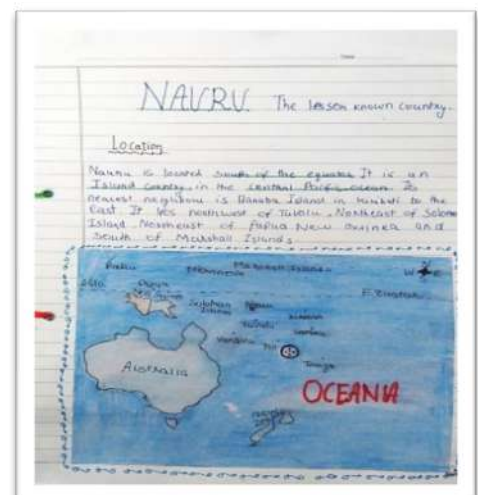 NAURU. The lessen known country.
Location
Nauru is located south of the equator It is an
Island country in the central Pacific ocean Its
nearest neighbour is Banaba Island in kiribati to the
East It lies northwest of Tuvalu, Northeast of Solomon
Island Northeast of Papua New Guinea and
South of Marshall Islands.
Marshall Islands
W E
Solomon
Islands
Nauru
Tuvalu
Fiji
Tonga
Australia
OCEANIA